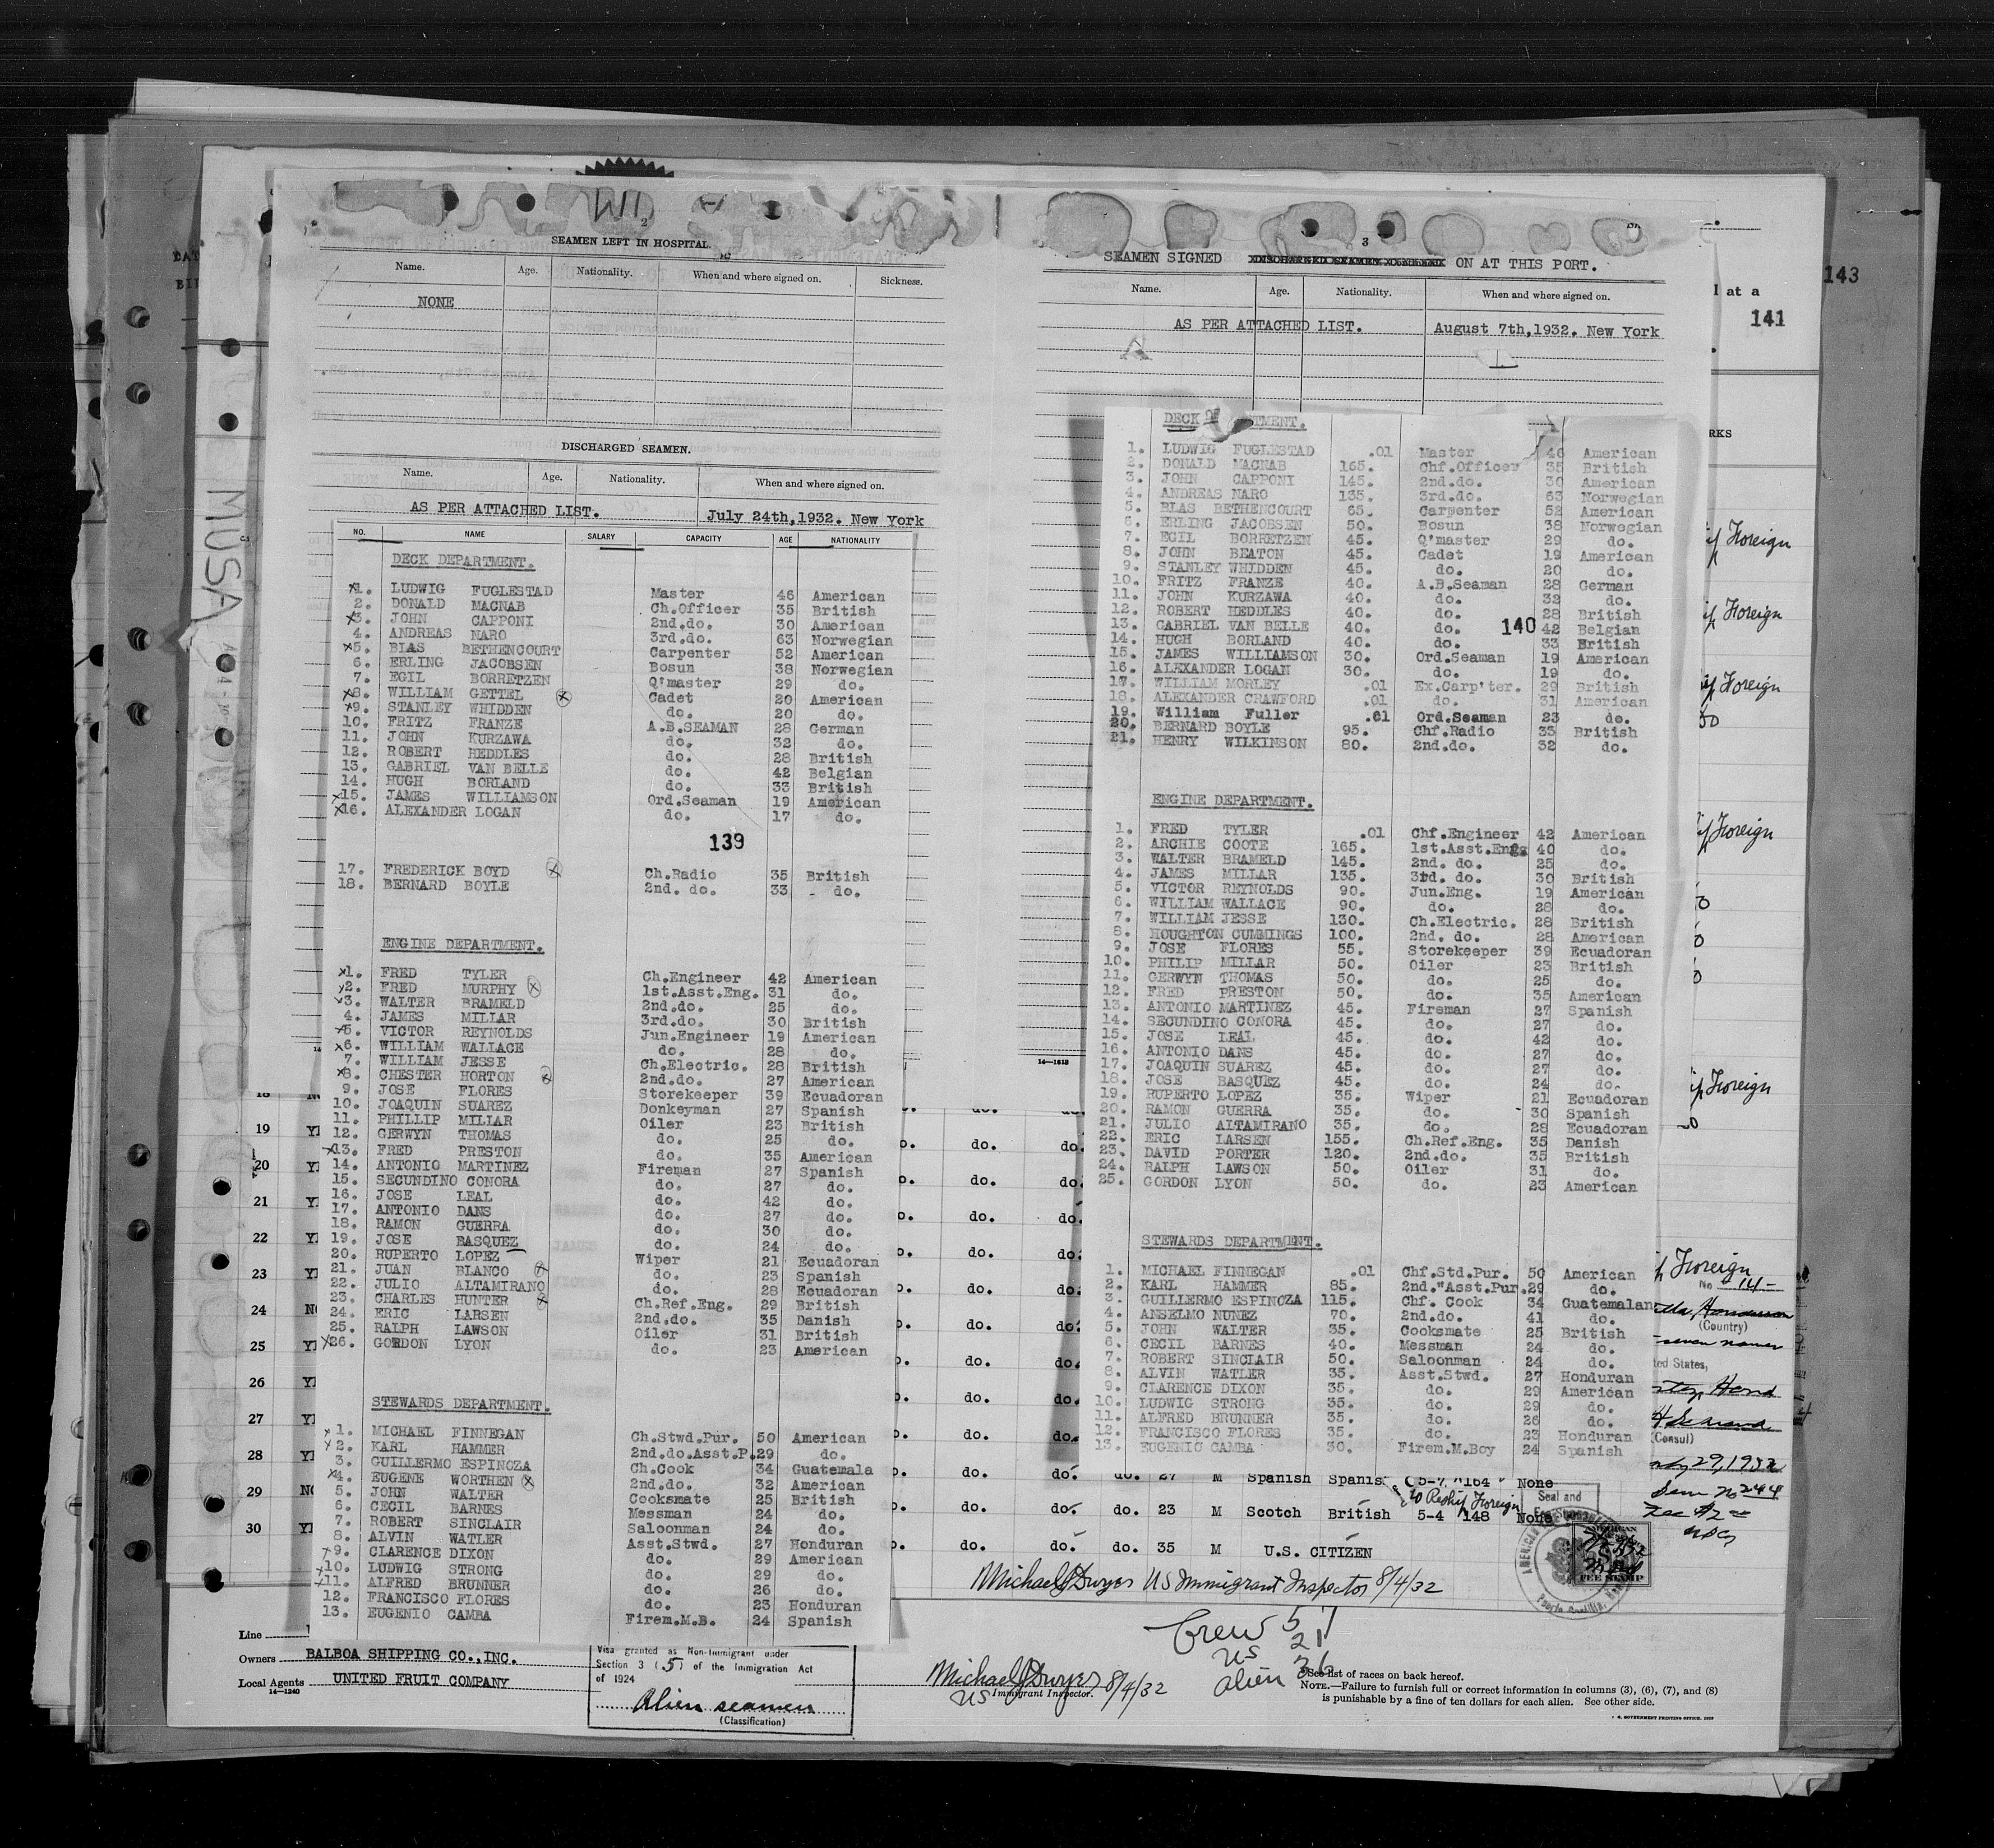 2
SEAMEN LEFT IN HOSPITAL.
Name. Age. Nationality. When and where signed on. Sickness.
NONE
DISCHARGED SEAMEN.
Name. Age. Nationality. When and where signed on.
AS PER ATTACHED LIST. July 24th,1932. New York
NO. NAME SALARY CAPACITY AGE NATIONALITY
DECK DEPARTMENT.
x1. LUDWIG FUGLESTAD Master 46 American
2. DONALD MACNAB Ch.Officer 35 British
x3. JOHN CAPPONI 2nd.do. 30 American
4. ANDREAS NARO 3rd.do. 63 Norwegian
x5. BLAS BETHENCOURT Carpenter 52 American
6. ERLING JACOBSEN Bosun 38 Norwegian
7. EGIL BORRETZEN Q'master 29 do.
x8. WILLIAM GETTEL x Cadet 20 American
x9. STANLEY WHIDDEN do. 20 do.
10. FRITZ FRANZE A.B.SEAMAN 28 German
11. JOHN KURZAWA do. 32 do.
12. ROBERT HEDDLES do. 28 British
13. GABRIEL VAN BELLE do. 42 Belgian
14. HUGH BORLAND do. 33 British
x15. JAMES WILLIAMSON Ord.Seaman 19 American
x16. ALEXANDER LOGAN do. 17 do.
139
17. FREDERICK BOYD x Ch.Radio 35 British
18. BERNARD BOYLE 2nd. do. 33 do.
ENGINE DEPARTMENT.
x1. FRED TYLER Ch.Engineer 42 American
x2. FRED MURPHY x 1st.Asst.Eng. 31 do.
x3. WALTER BRAMELD 2nd.do. 25 do.
4. JAMES MILLAR 3rd.do. 30 British
x5. VICTOR REYNOLDS Jun.Engineer 19 American
x6. WILLIAM WALLACE do. 28 do.
7. WILLIAM JESSE Ch.Electric. 28 British
x8. CHESTER HORTON x 2nd.do. 27 American
9. JOSE FLORES Storekeeper 39 Ecuadoran
10. JOAQUIN SUAREZ Donkeyman 27 Spanish
11. PHILLIP MILLAR Oiler 23 British
12. GERWYN THOMAS do. 25 do.
x13. FRED PRESTON do. 35 American
14. ANTONIO MARTINEZ Fireman 27 Spanish
15. SECUNDINO CONORA do. 27 do.
16. JOSE LEAL do. 42 do.
17. ANTONIO DANS do. 27 do.
18. RAMON GUERRA do. 30 do.
19. JOSE BASQUEZ do. 24 do.
20. RUPERTO LOPEZ Wiper 21 Ecuadoran
21. JUAN BLANCO x do. 23 Spanish
22. JULIO ALTAMIRANO do. 28 Ecuadoran
23. CHARLES HUNTER x Ch.Ref.Eng. 29 British
24. ERIC LARSEN 2nd.do. 35 Danish
25. RALPH LAWSON Oiler 31 British
x26. GORDON LYON do. 23 American
STEWARDS DEPARTMENT.
x1. MICHAEL FINNEGAN Ch.Stwd.Pur. 50 American
x2. KARL HAMMER 2nd.do.Asst.P. 29 do.
3. GUILLERMO ESPINOZA Ch.Cook 34 Guatemala
x4. EUGENE WORTHEN x 2nd.do. 32 American
5. JOHN WALTER Cooksmate 25 British
6. CECIL BARNES Messman 24 do.
7. ROBERT SINCLAIR Saloonman 24 do.
8. ALVIN WATLER Asst.Stwd. 27 Honduran
x9. CLARENCE DIXON do. 29 American
x10. LUDWIG STRONG do. 29 do.
x11. ALFRED BRUNNER do. 26 do.
12. FRANCISCO FLORES do. 23 Honduran
13. EUGENIO CAMBA Firem.M.B. 24 Spanish
3
SEAMEN SIGNED ON AT THIS PORT.
Name. Age. Nationality. When and where signed on.
AS PER ATTACHED LIST. August 7th,1932. New York
DECK
1. LUDWIG FUGLESTAD .01 Master 46 American
2. DONALD MACNAB 165. Chf.Officer 35 British
3. JOHN CAPPONI 145. 2nd.do. 30 American
4. ANDREAS NARO 135. 3rd.do. 63 Norwegian
5. BLAS BETHENCOURT 65. Carpenter 52 American
6. ERLING JACOBSEN 50. Bosun 38 Norwegian
7. EGIL BORRETZEN 45. Q'master 29 do.
8. JOHN BEATON 45. Cadet 19 American
9. STANLEY WHIDDEN 45. do. 20 do.
10. FRITZ FRANZE 40. A.B.Seaman 28 German
11. JOHN KURZAWA 40. do. 32 do.
12. ROBERT HEDDLES 40. do. 28 British
13. GABRIEL VAN BELLE 40. do. 140 42 Belgian
14. HUGH BORLAND 40. do. 33 British
15. JAMES WILLIAMSON 30. Ord.Seaman 19 American
16. ALEXANDER LOGAN 30. do. 19 do.
17. WILLIAM MORLEY .01 Ex.Carp'ter. 29 British
18. ALEXANDER CRAWFORD .01 do. 31 American
19. William Fuller .01 Ord.Seaman 23 do.
20. BERNARD BOYLE 95. Chf.Radio 33 British
21. HENRY WILKINSON 80. 2nd.do. 32 do.
ENGINE DEPARTMENT.
1. FRED TYLER .01 Chf.Engineer 42 American
2. ARCHIE COOTE 165. 1st.Asst.Eng. 40 do.
3. WALTER BRAMELD 145. 2nd. do. 25 do.
4. JAMES MILLAR 135. 3rd. do. 30 British
5. VICTOR REYNOLDS 90. Jun.Eng. 19 American
6. WILLIAM WALLACE 90. do. 28 do.
7. WILLIAM JESSE 130. Ch.Electric. 28 British
8. HOUGHTON CUMMINGS 100. 2nd. do. 28 American
9. JOSE FLORES 55. Storekeeper 39 Ecuadoran
10. PHILIP MILLAR 50. Oiler 23 British
11. GERWYN THOMAS 50. do. 25 do.
12. FRED PRESTON 50. do. 35 American
13. ANTONIO MARTINEZ 45. Fireman 27 Spanish
14. SECUNDINO CONORA 45. do. 27 do.
15. JOSE LEAL 45. do. 42 do.
16. ANTONIO DANS 45. do. 27 do.
17. JOAQUIN SUAREZ 45. do. 27 do.
18. JOSE BASQUEZ 45. do. 24 do.
19. RUPERTO LOPEZ 35. Wiper 21 Ecuadoran
20. RAMON GUERRA 35. do. 30 Spanish
21. JULIO ALTAMIRANO 35. do. 28 Ecuadoran
22. ERIC LARSEN 155. Ch.Ref.Eng. 35 Danish
23. DAVID PORTER 120. 2nd.do. 35 British
24. RALPH LAWSON 50. Oiler 31 do.
25. GORDON LYON 50. do. 23 American
STEWARDS DEPARTMENT.
1. MICHAEL FINNEGAN .01 Chf.Std.Pur. 50 American
2. KARL HAMMER 85. 2nd."Asst.Pur. 29 do.
3. GUILLERMO ESPINOZA 115. Chf. Cook 34 Guatemalan
4. ANSELMO NUNEZ 70. 2nd.do. 41 do.
5. JOHN WALTER 35. Cooksmate 25 British
6. CECIL BARNES 40. Messman 24 do.
7. ROBERT SINCLAIR 50. Saloonman 24 do.
8. ALVIN WATLER 35. Asst.Stwd. 27 Honduran
9. CLARENCE DIXON 35. do. 29 American
10. LUDWIG STRONG 35. do. 29 do.
11. ALFRED BRUNNER 35. do. 26 do.
12. FRANCISCO FLORES 35. do. 23 Honduran
13. EUGENIO CAMBA 30. Firem.M.Boy 24 Spanish
143
141
MUSA
Foreign
Foreign
Foreign
Foreign
Foreign
Foreign
No 141
(Country)
(Consul)
18
19
20
21
22
23
24
25
26
27
28
29
30
do. do. do. 27 M Spanish 5-7 164 None
do. do. do. 23 M Scotch British 5-4 148 None
to Reship Foreign
do. do. do. 35 M U.S. CITIZEN
Seal and
AMERICAN
FEE STAMP
Michael J Dwyer US Immigrant Inspector 8/4/32
Crew 57
US 21
alien 36
Line
Owners BALBOA SHIPPING CO.,INC.
Local Agents UNITED FRUIT COMPANY
14-1240
Visa granted as Non-Immigrant under
Section 3 (5) of the Immigration Act
of 1924
Alien seamen
(Classification)
Michael J Dwyer 8/4/32
US Immigrant Inspector.
See list of races on back hereof.
NOTE.—Failure to furnish full or correct information in columns (3), (6), (7), and (8)
is punishable by a fine of ten dollars for each alien. See other side.